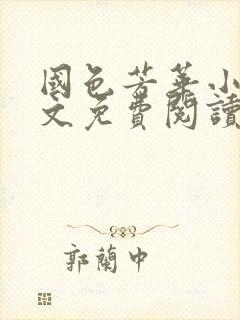 國色芳華小
文免費閱讀
郭蘭中